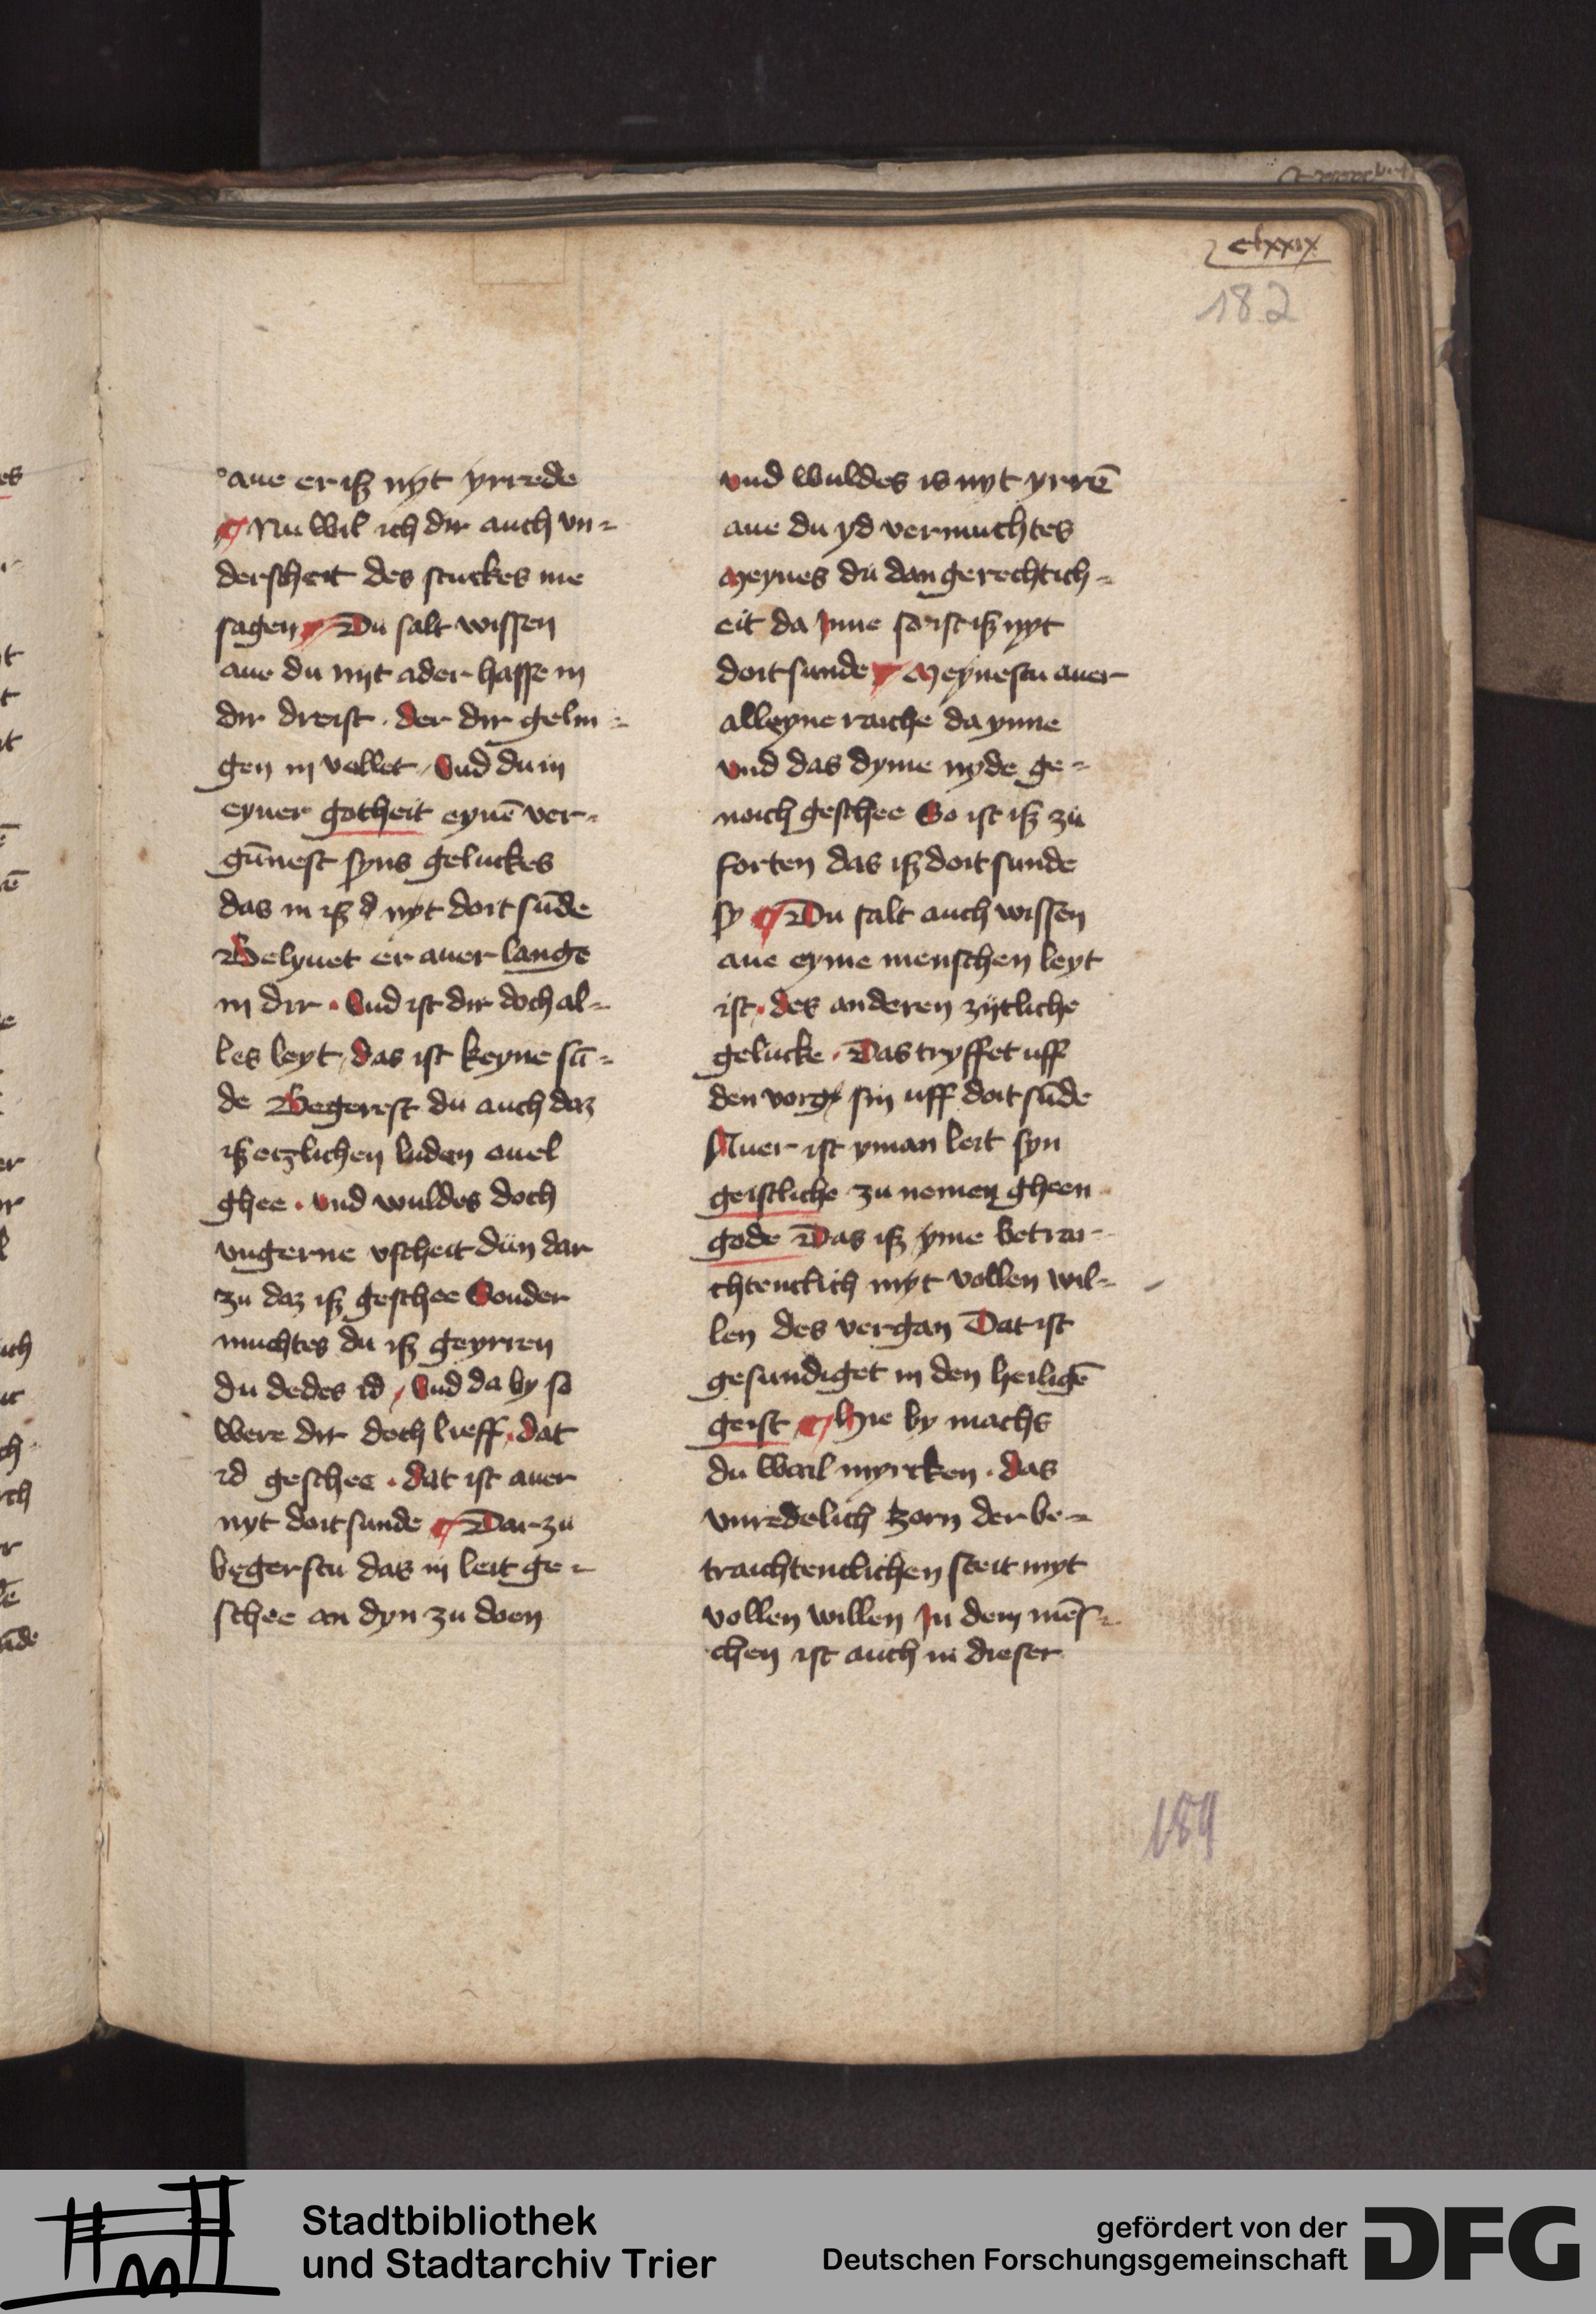 clxxix
182
aue er iß nyt yrrede
Nu wil ich dir auch vn-
derscheit des stuckes me
sagen Du salt wissen
aue du nyt ader hasse in
dir dreist. der dir gelin-
gen in vollet, Vnd du in
eyner gotheit eynē ver-
gūnest syns geluckes
das in iß d nyt doit sūde
Belyuet er auer lange
in dir. Vnd ist dir doch al-
les leyt, das ist keyne sū-
de Begerest du auch daz
iß etzlichen luden ouel
ghee. vnd wuldes doch
vngerne vscheit dun dar
zu daz iß geschee Sonder
muchtes du iß geyrren
du dedes id, Vnd da by so
were dir doch lieff, dat
id geschee. dat ist auer
nyt doit sunde Dar zu
begerstu das in leit ge-
schee an dyn zu doen
vnd wuldes is nyt yrrē
aue du yd vermuchtes
Meynes du dan gerechtich-
eit da Inne so ist iß nyt
doit sunde Meynestu auer
alleyne raiche da ynne
vnd das dyme nyde ge-
noich geschee So ist iß zu
forten das iß doit sunde
sy Du salt auch wissen
aue eyme menschen leyt
ist. des anderen zijtliche
gelucke. Das tryffet uff
den vorg sin uff doit sūde
Auer ist yman leit syn
geistliche zu nemen gheen
gode Das iß yme betra-
chtentlich myt vollen wil-
len des vergan Dat ist
gesundiget in den heiligē
geist Hie by machs
du wail myrcken. das
vnredelich zorn der be-
traichtentlichen steit myt
vollen willen In dem mēs-
chen ist auch in dieser
189
Stadtbibliothek
und Stadtarchiv Trier
gefördert von der
Deutschen Forschungsgemeinschaft
DFG